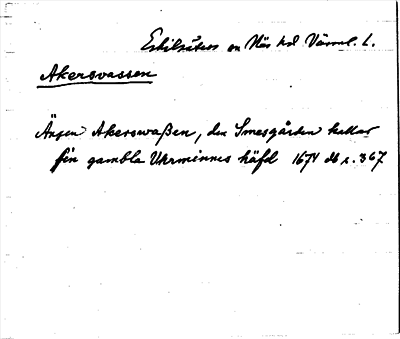 Eskilsäters sn Näs hd Värml. l.
Akersvassen
Ängen Akerswaßen, den Smesgården kallar
sin gambla Uhrminnes häfd 1674 db s. 367